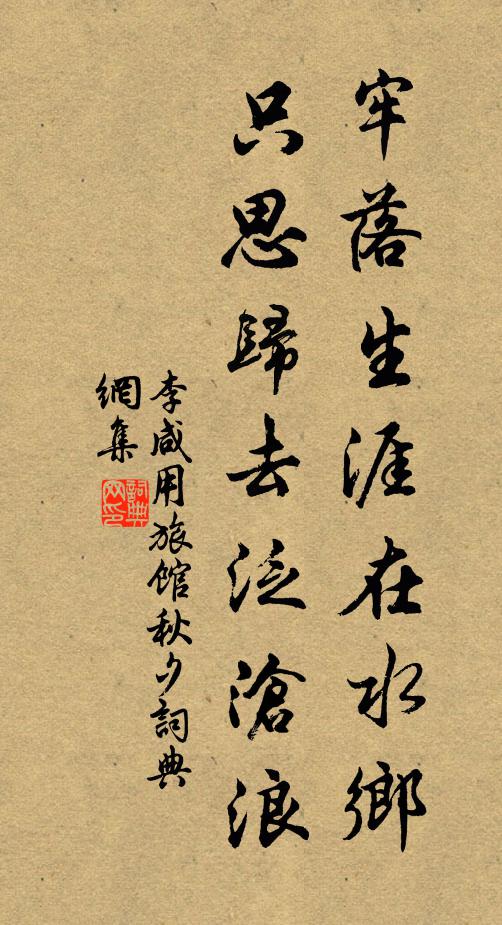 牢落生涯在水鄉
只思歸去泛滄浪
李咸用旅館秋夕詞典
網集
詞典網印